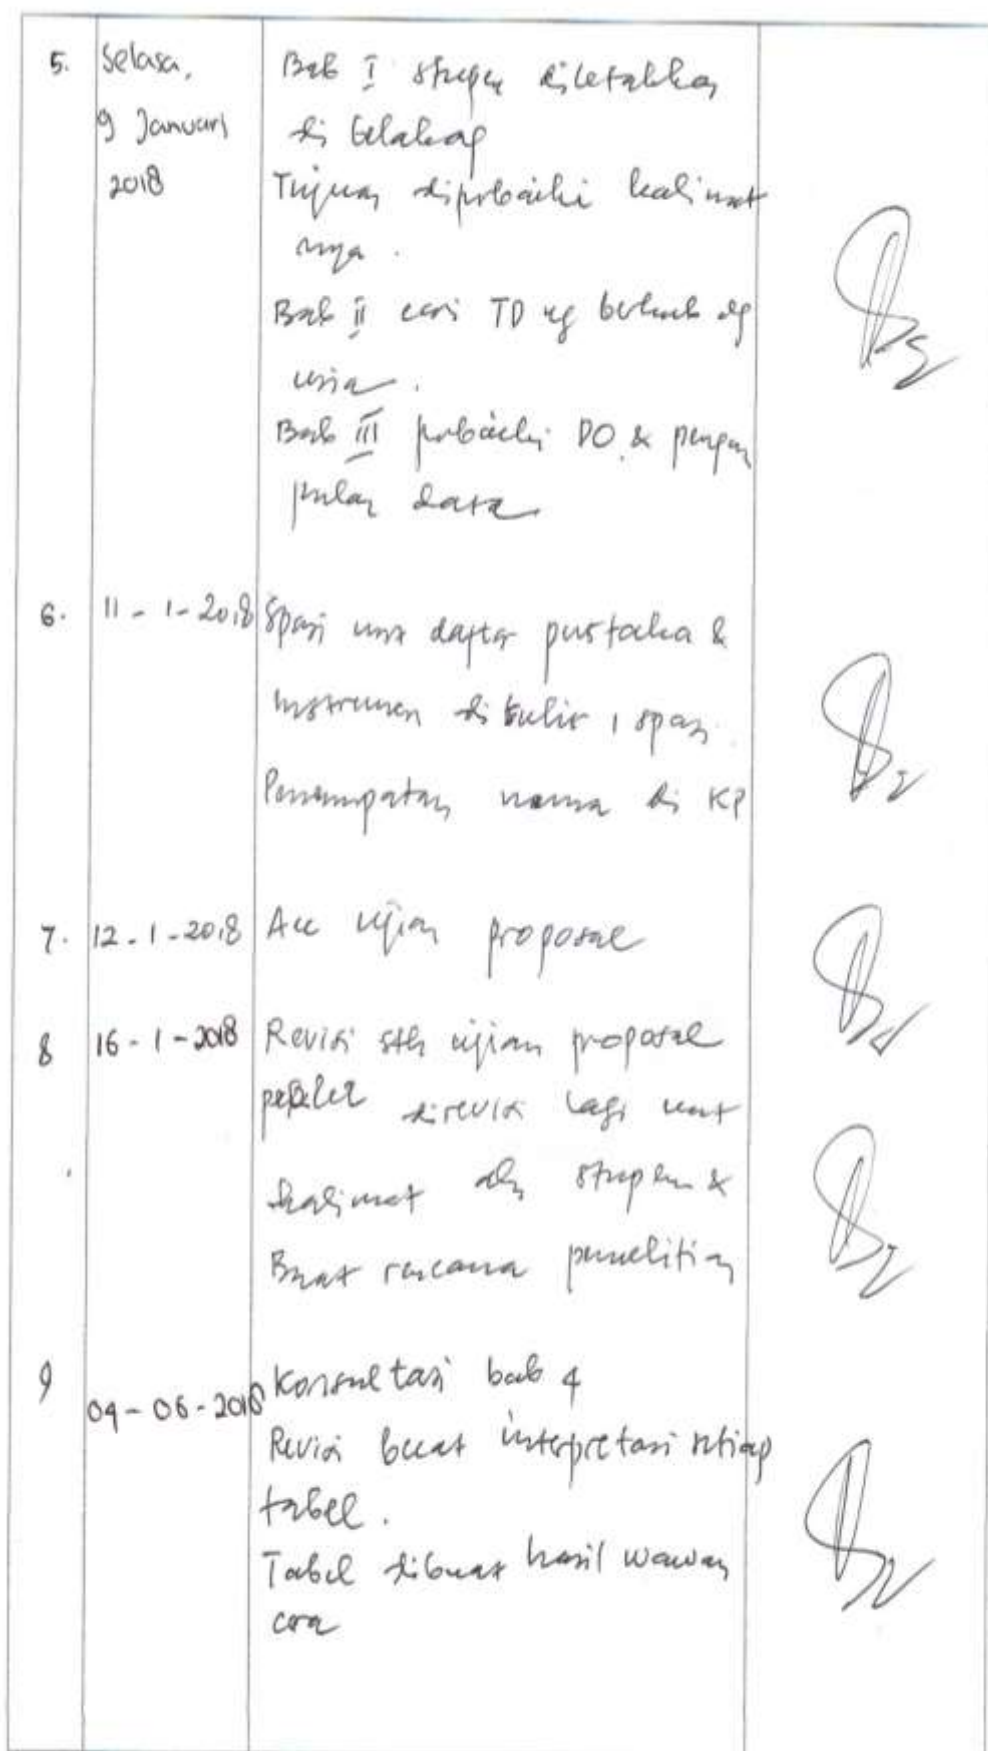 5. Selasa, 9 Januari 2018
Bab I stupen diletakkan
di belakag
Tujuan diperbaiki kalimat
nya.
Bab II cari TD yg berhub dg
usia.
Bab III perbaiki DO & pengum
pulan data
6. 11-1-2018 Spasi unt daftar pustaka &
instrumen ditulis 1 spasi.
Penempatan nama di KP
7. 12-1-2018 Acc ujian proposal
8 16-1-2018 Revisi stlh ujian proposal
direvisi lagi unt
kalimat dlm stupen &
Buat rencana penelitian
9 04-06-2018 Konsultasi bab 4
Revisi buat interpretasi setiap
tabel.
Tabel dibuat hasil wawan
cara